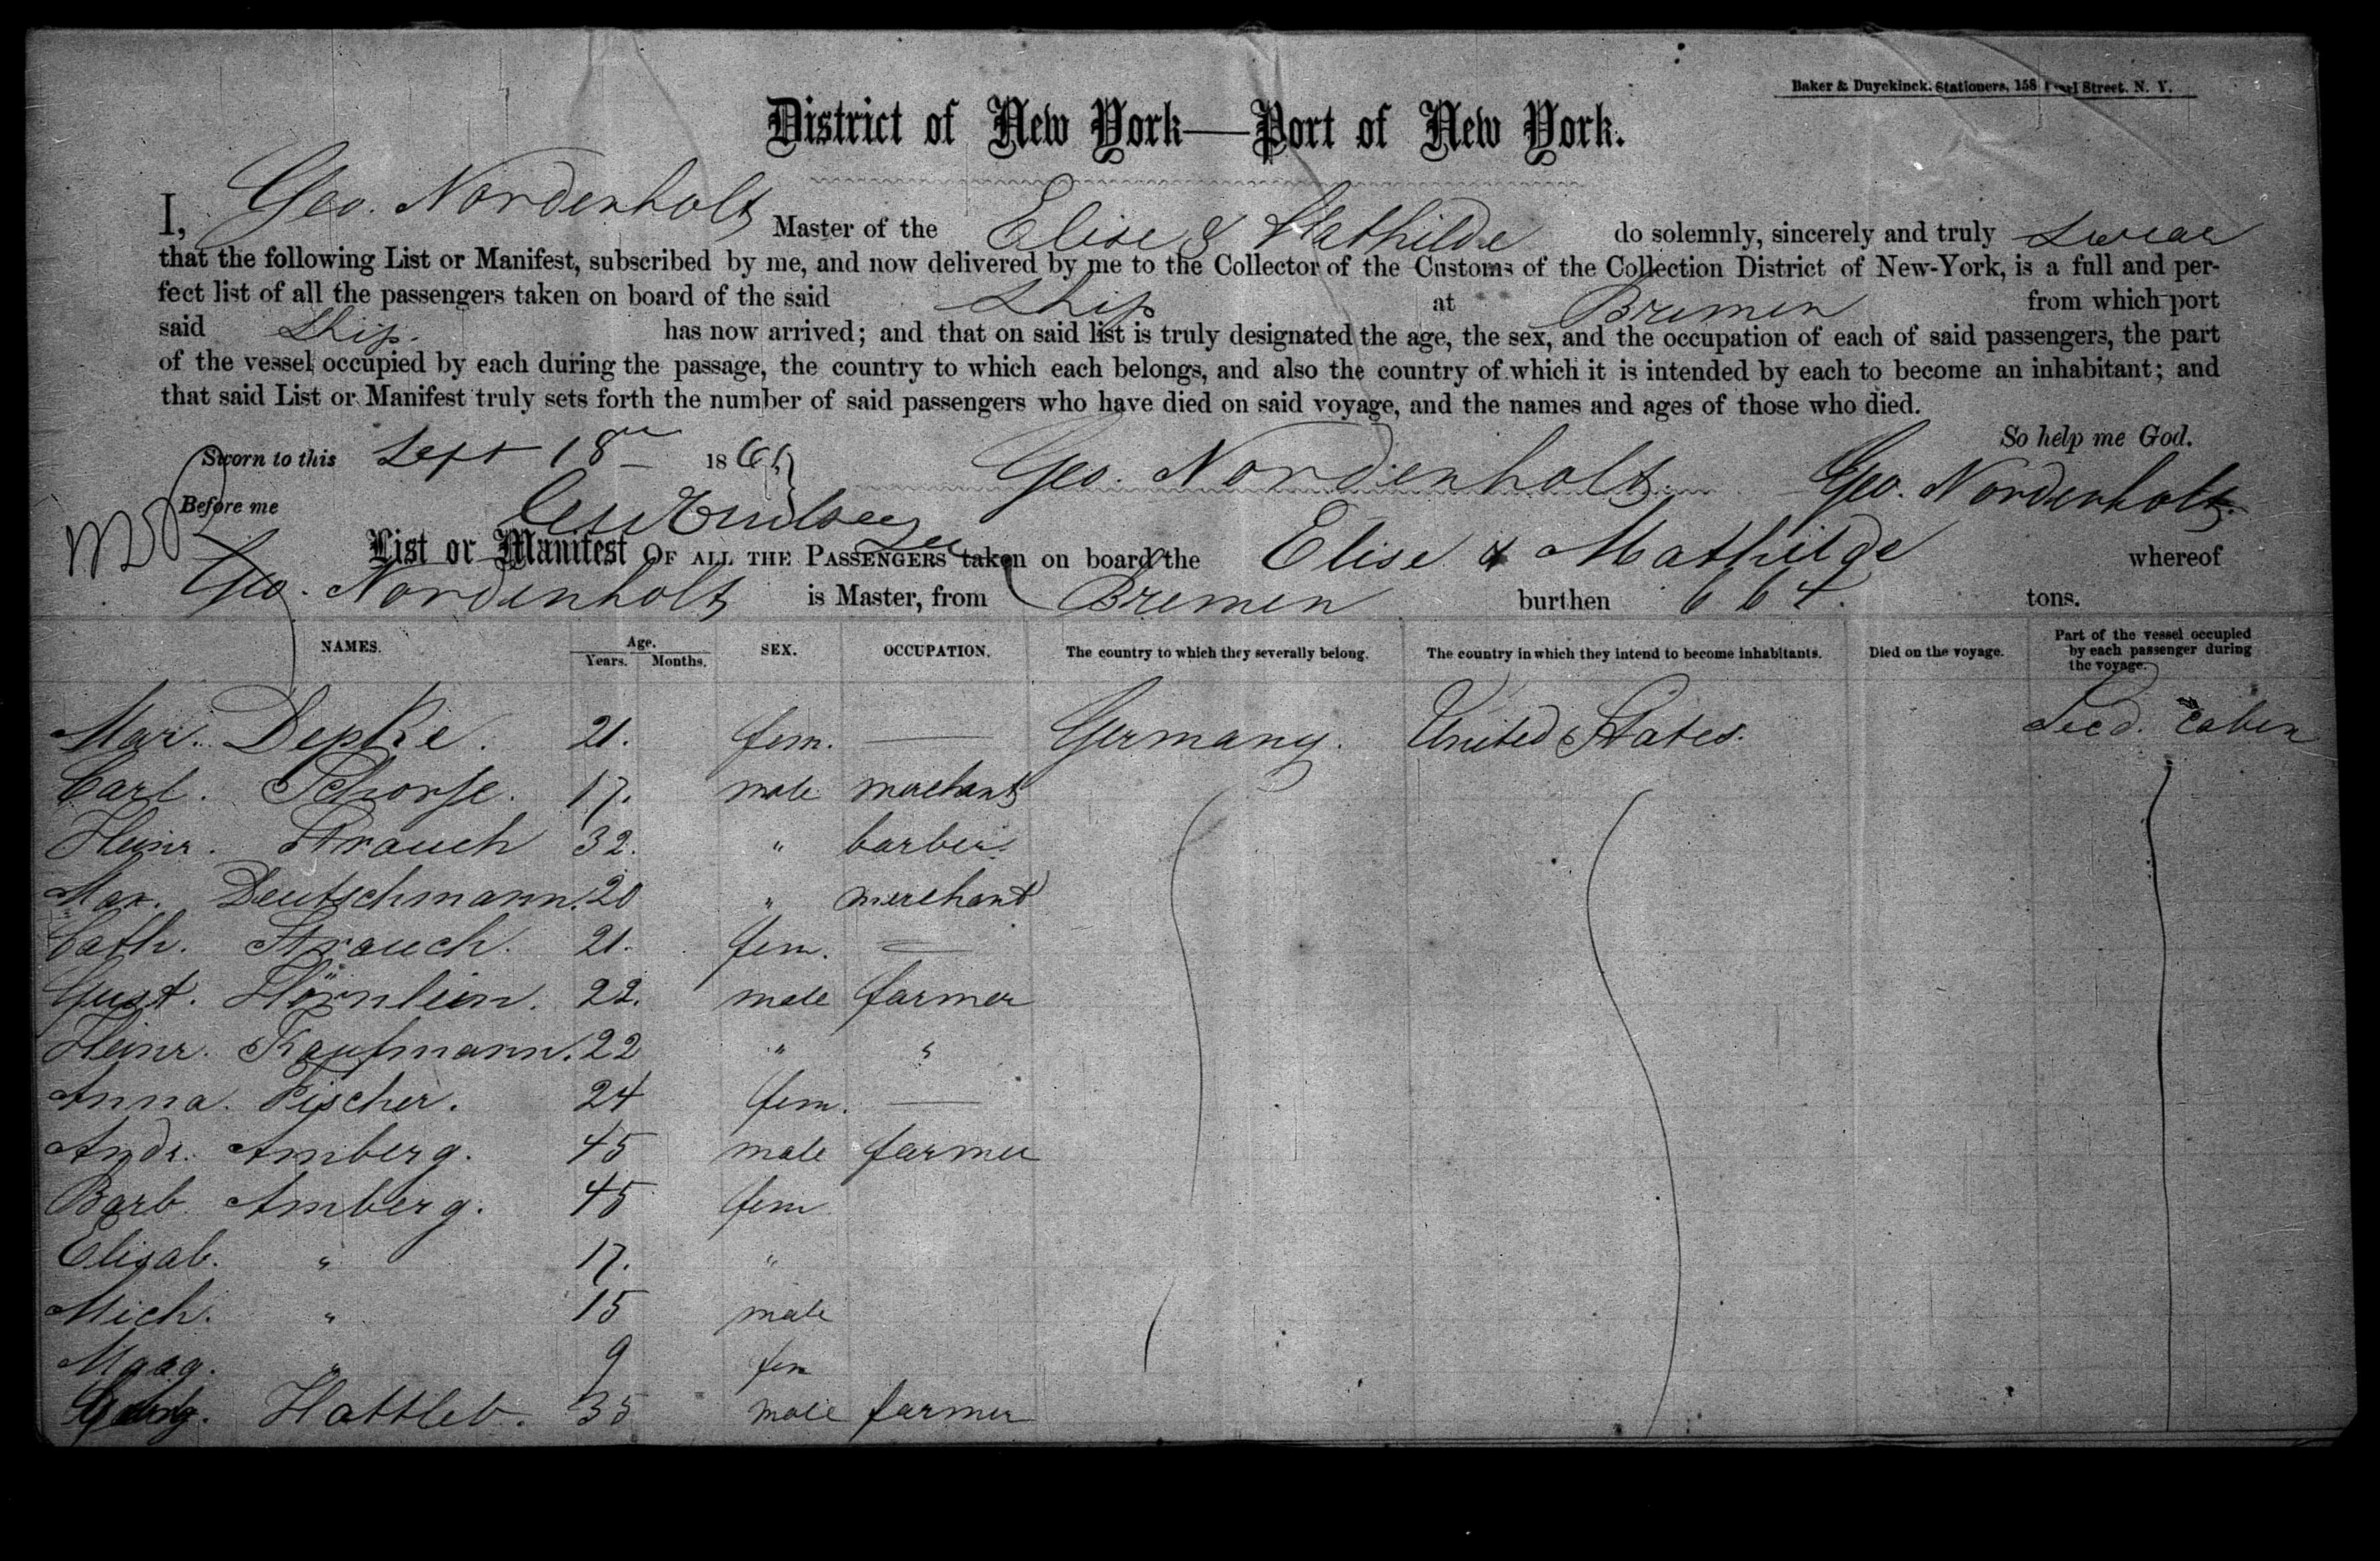 Baker & Duyckinck, Stationers, 158 Pearl Street, N. Y.
District of New York—Port of New York.
I, Geo. Nordenholt Master of the Elise & Mathilde do solemnly, sincerely and truly swear
that the following List or Manifest, subscribed by me, and now delivered by me to the Collector of the Customs of the Collection District of New-York, is a full and per-
fect list of all the passengers taken on board of the said Ship at Bremen from which port
said Ship. has now arrived; and that on said list is truly designated the age, the sex, and the occupation of each of said passengers, the part
of the vessel occupied by each during the passage, the country to which each belongs, and also the country of which it is intended by each to become an inhabitant; and
that said List or Manifest truly sets forth the number of said passengers who have died on said voyage, and the names and ages of those who died.
So help me God.
Sworn to this Sept 18 186 Geo. Nordenholt. Geo. Nordenholt.
Before me
List or Manifest OF ALL THE PASSENGERS taken on board the Elise & Mathilde whereof
Geo. Nordenholt is Master, from Bremen burthen 664. tons.
NAMES. Age. Years. Months. SEX. OCCUPATION. The country to which they severally belong. The country in which they intend to become inhabitants. Died on the voyage. Part of the vessel occupied by each passenger during the voyage.
Mar. Depke. 21. fem. — Germany. United States. Secd. Cabin
Carl. Schorse. 17. male merchant
Heinr. Strauch 32. " barber.
Max. Deutschmann. 20 " merchant
Cath. Strauch. 21. fem. —
Gust. Hörnlein. 22. male farmer
Heinr. Kaufmann. 22 " "
Anna. Fischer. 24 fem. —
Andr. Amberg. 45 male farmer
Barb. Amberg. 45 fem
Elisab. " 17. "
Mich. " 15 male
Marg. " 9 fem
Hattleb. 35 male farmer